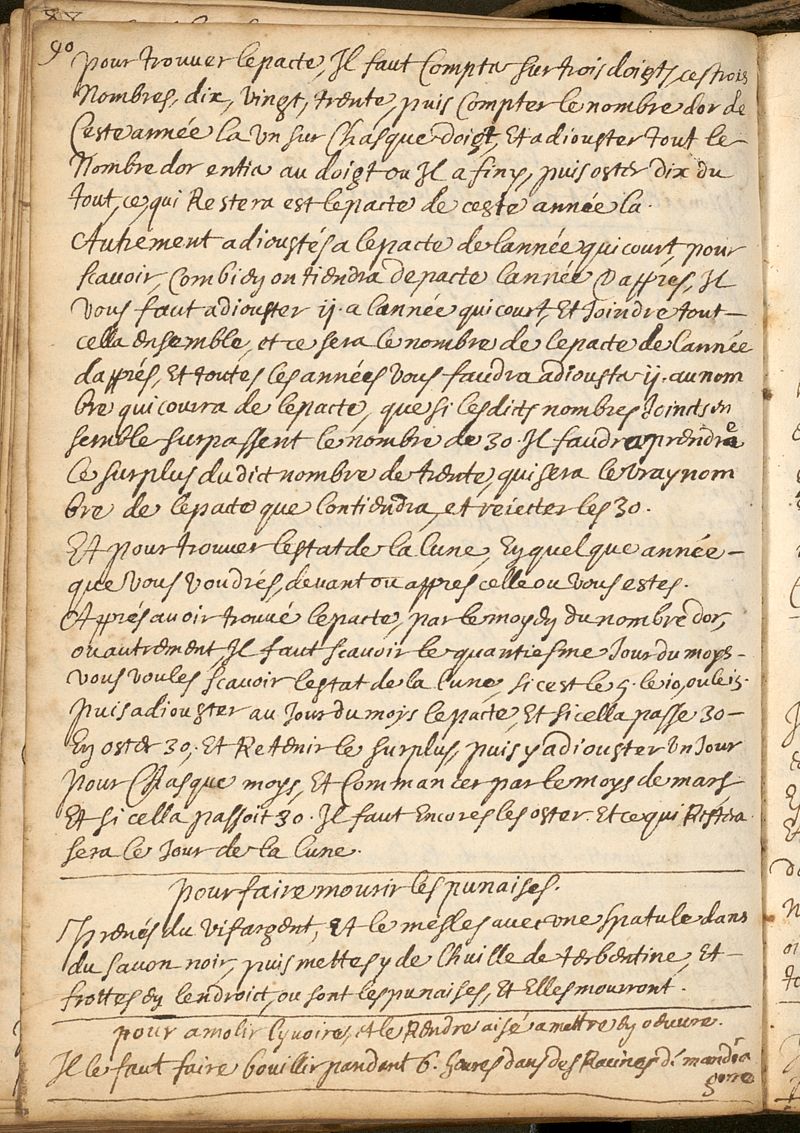 90
pour trouver lepacte, Il faut Compta sur trois doigts, ces trois
Nombres, dix, vingt, trente, puis Compter le nombre dor de
Ceste année la vn sur Chasque doigt, Et adiouster tout le
Nombre dor entia au doigt ou Il a finy, puis oster dix du
tout, ce qui Restera est lepacte de ceste année la.
Autrement adioustés a lepacte de lannée qui court, pour
scavoir, Combien on tiendra depacte lannée Dappres, Il
vous faut adiouster ij. a lannée qui court, Et Joindre tout
cella ensemble, et ce sera le nombre de lepacte de lannée
dapprés, Et toutes les années vous faudra adiousta ij. au nom
bre qui courra de lepacte, que si lesdicts nombres Joincts en
semble surpassent le nombre de 30. Il faudra prendre
le surplus dudict nombre de trente, qui sera le vray nom
bre de lepacte que lontiendra, et reietter les 30.
Et pour trouver lestat de la lune, En quelque année
que vous voudrés, devant ou appres celle ou vous estes.
Apprés avoir trouvé lepacte, par le moyen du nombre dor,
ou autrement, Il faut scavoir le quantiesme Jour du moys
vous voules scavoir lestat de la lune, si cest le 5. le 10, ou le 15.
puis adiouster au Jour du moys lepacte, Et si cella passe 30
En oster 30, Et Retenir le surplus, puis y adiouster vn Jour
pour Chasque moys, Et Commancer par le moys de mars
Et si cella passoit 30. Il faut Encores les oster. Et ce qui Restera
sera le Jour de la lune.
pour faire mourir les punaises.
Prenés du vif argent, Et le mesles avec vne spatule dans
du savon noir, puis mettes y de Lhuille de terbentine, Et
frottes en lendroict, ou sont les punaises, Et Elles mourront.
pour amolir lyvoire, et le Rendre aisé a mettre en oeuvre.
Il le faut faire bouillir pandant 6. heures dans des Racines de mandra
gorre